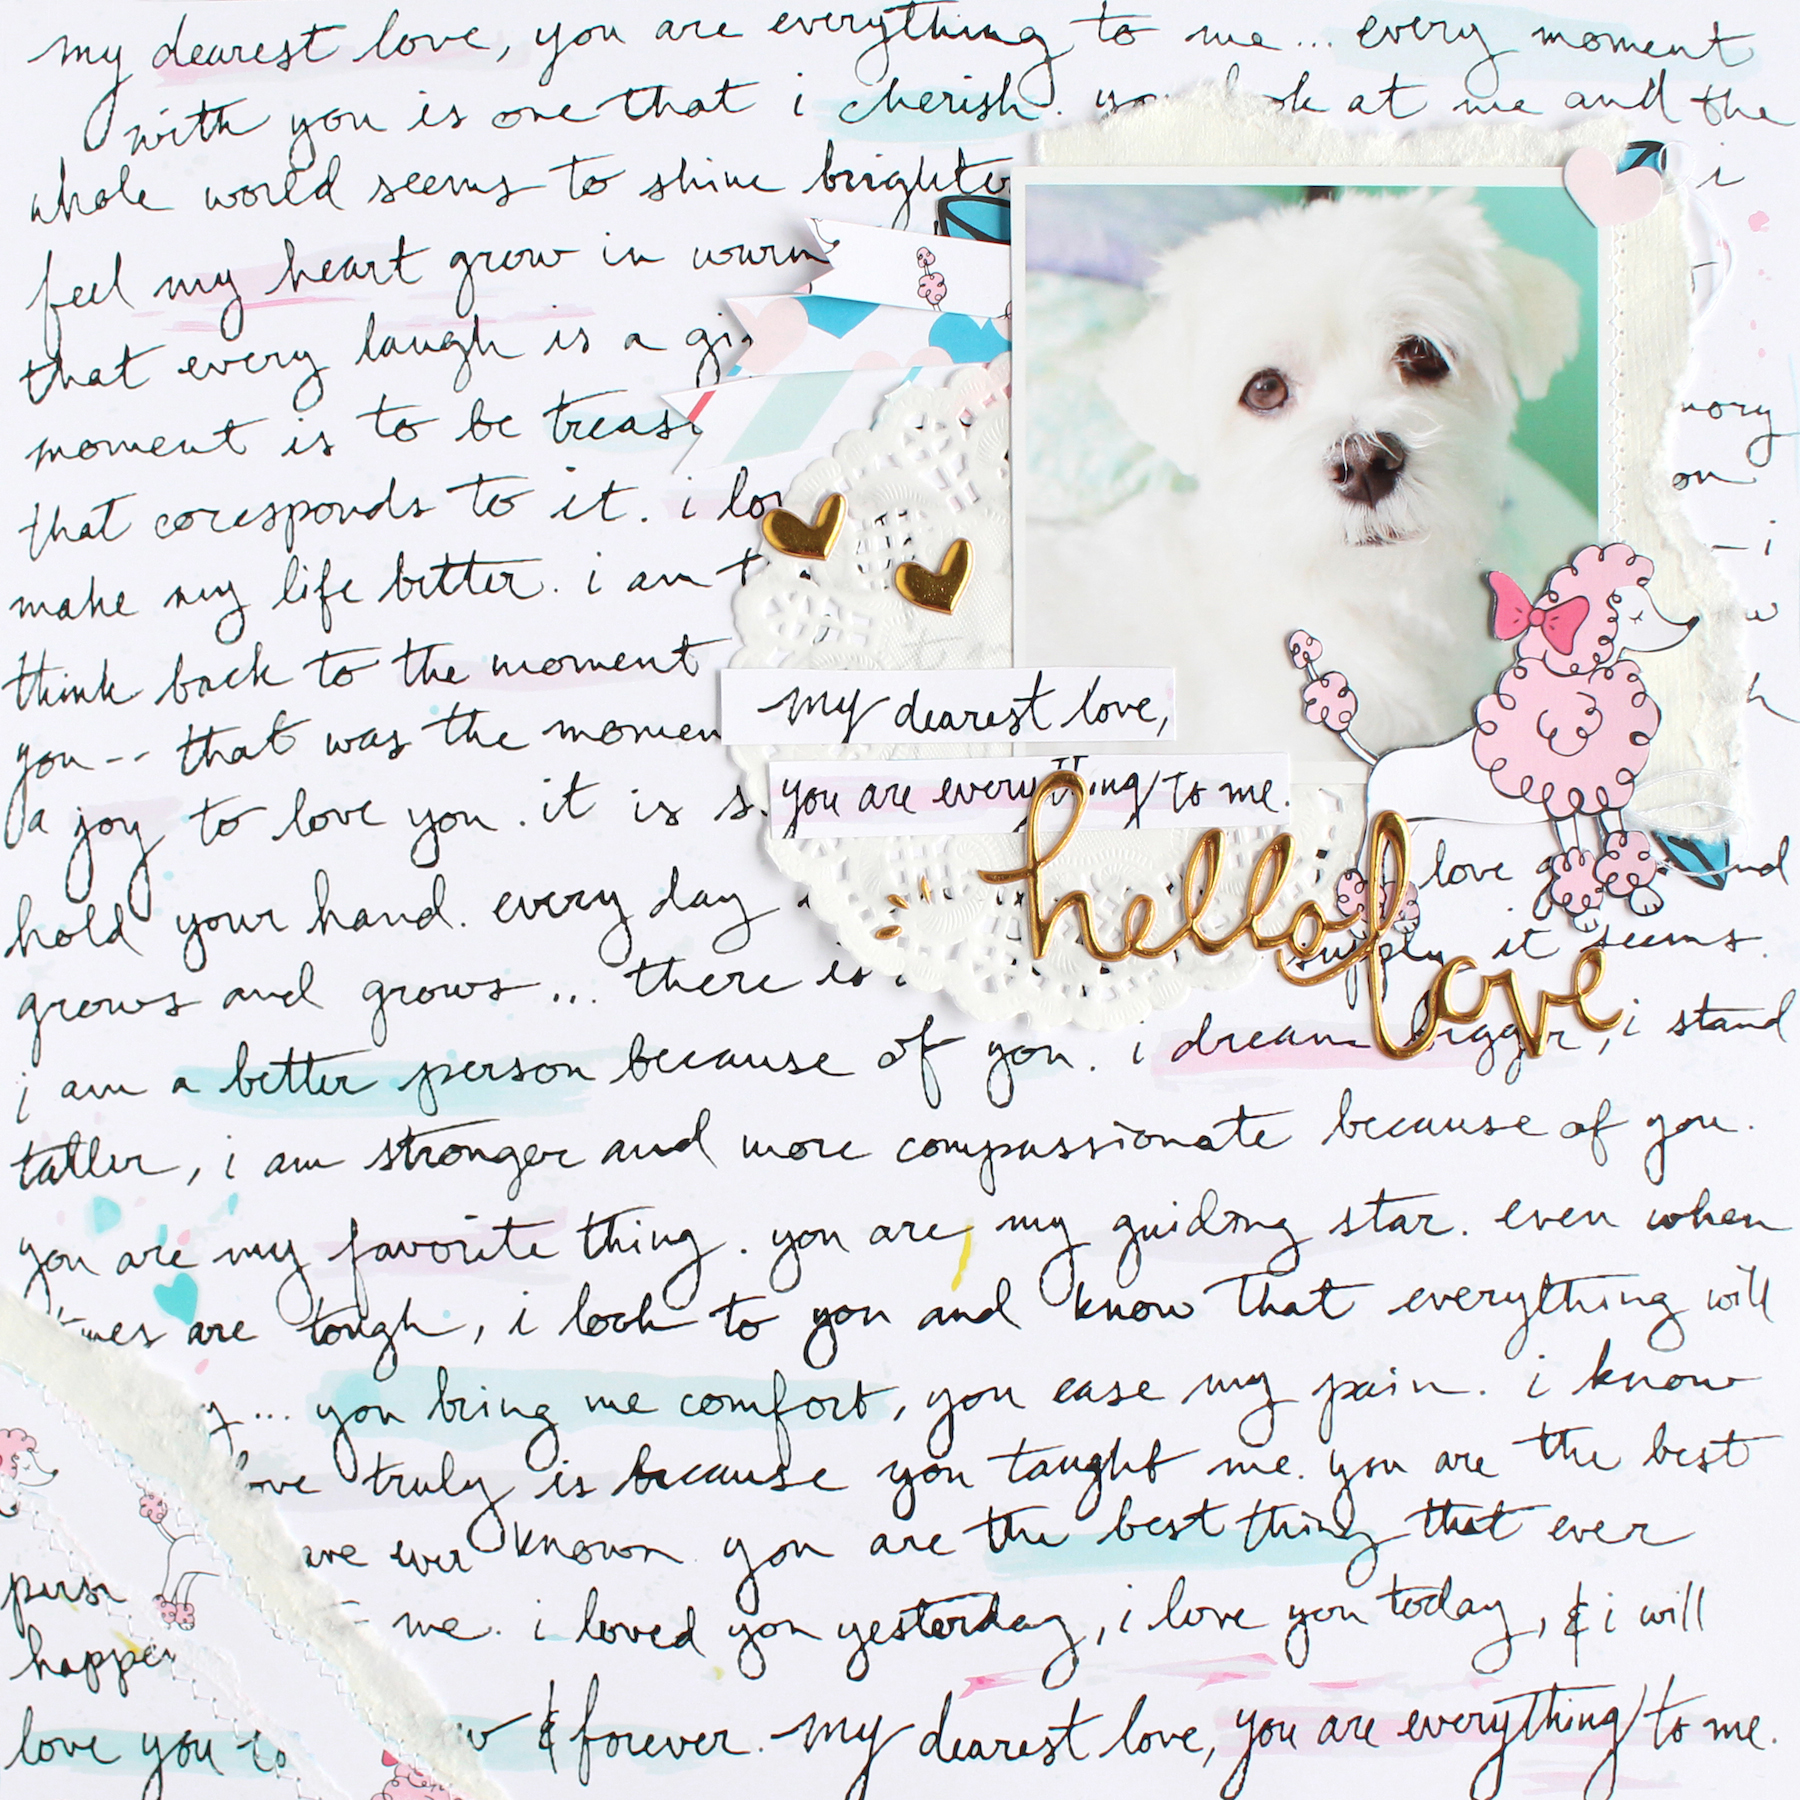 my dearest love, you are everything to me... every moment
with you is one that i cherish. you look at me and the
whole world seems to shine brighter i
feel my heart grow in warm
that every laugh is a
moment is to be
that coresponds to it. i
make my life better. i am
think back to the moment
you-- that was the
a joy to love you. it is
my dearest love,
you are everything to me.
hello love
hold your hand. every day love
grows and grows... there is supply it seems.
i am a better person because of you. i dream bigger, i stand
taller, i am stronger and more compassionate because of you.
you are my favorite thing. you are my guiding star. even when
times are tough, i look to you and know that everything will
... you bring me comfort, you ease my pain. i know
love truly is because you taught me. you are the best
ever known you are the best thing that ever
me. i loved you yesterday, i love you today, & i will
love you to & forever. my dearest love, you are everything to me.